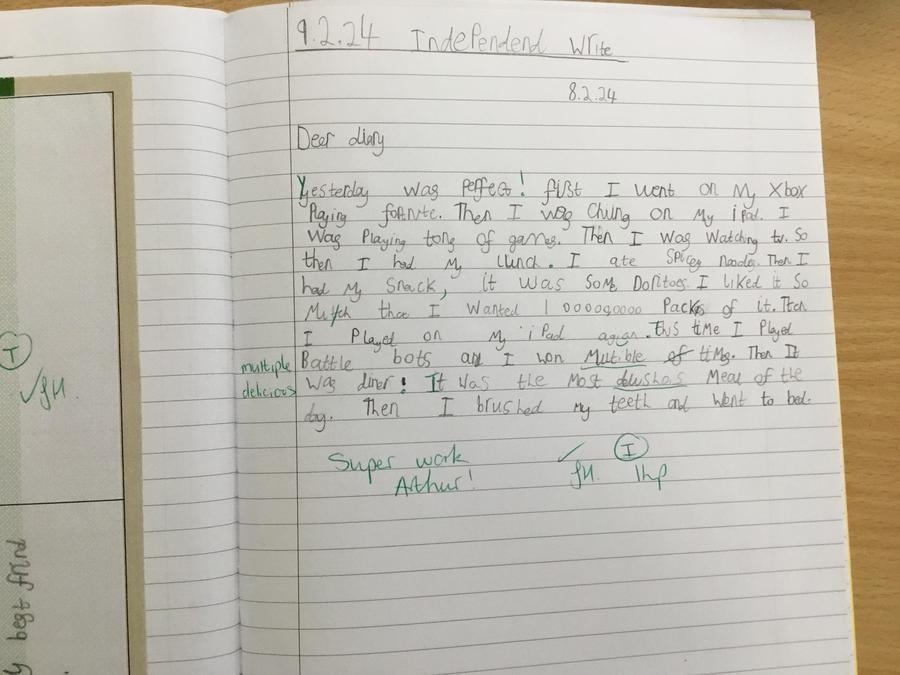 9.2.24 Independend write
8.2.24
Deer diary
Yesterday was peffect! first I went on My Xbox
Playing fotnrte. Then I was Chling on My ipad. I
Was Playing tons of games. Then I was watching tv. So
then I had My lunch. I ate Spicey noodls. Then I
had My Snack, it was Some Doritoes. I liked it So
Mutch that I Wanted 1000000000 Packs of it. Then
I Played on My iPad agian. this time I Played
multiple Battle bots and I won Mutible of times. Then It
delicious was diner! It was the Most dlushois Meal of the
day. Then I brushed My teeth and Went to bed.
Super work
Arthur!
✓ I
JH. 1hp
T
✓JH.
y best frind